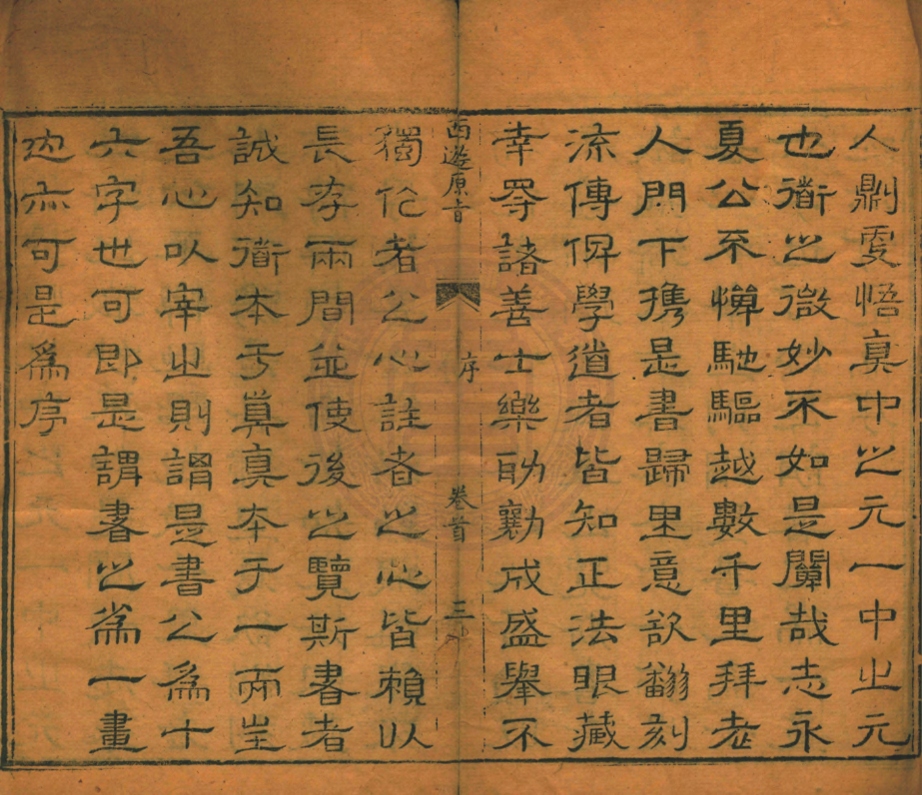 人鼎叟悟真中之元一中之元
也衜之微妙不如是闡哉志永
夏公不憚馳驅越數千里拜老
人門下攜是書歸里意欲翻刻
流傳俾學道者皆知正法眼藏
幸尋諸善士樂助襄成盛舉不
西遊原旨 序 卷首 三
獨作者之心註者之心皆賴以
長存兩間並使後之覽斯書者
誠知衜本于真真本于一而主
吾心以宰之則謂是書公為十
六字也可即是謂書之為一畫
也亦可是為序